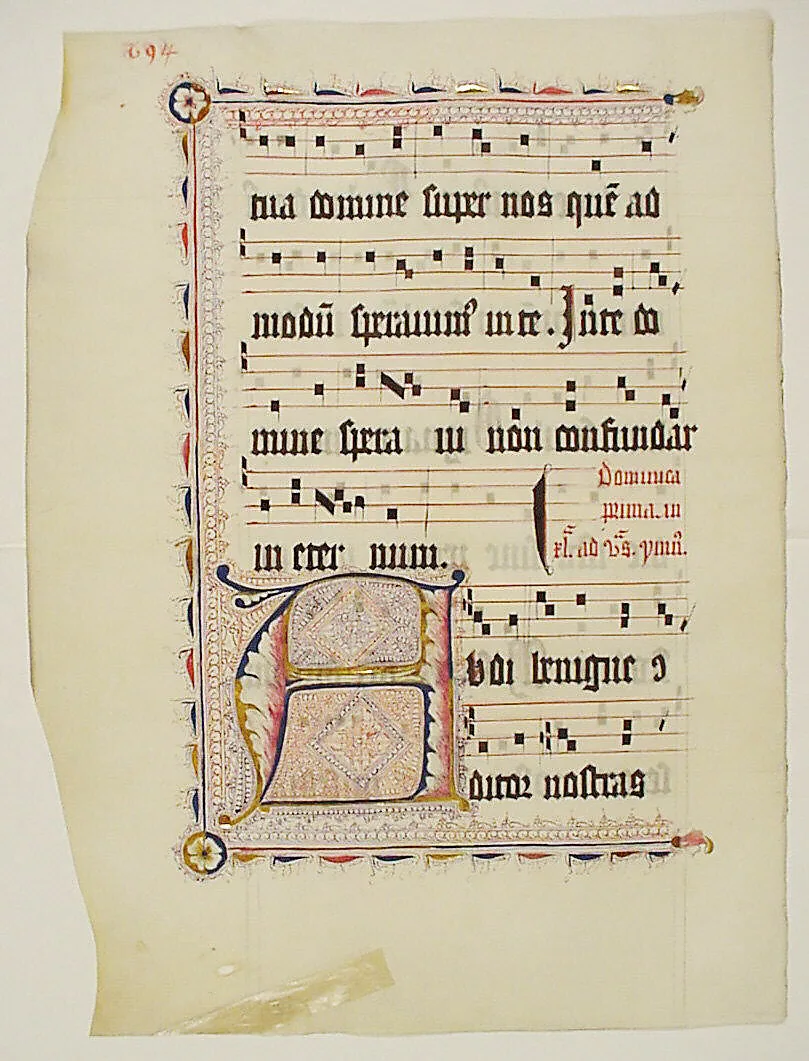 tua domine super nos quē ad
modū sperauimꝰ in te. In te do
mine spera ui non confundar
in eter num.
Dominica
prima. in
xl̄. ad v̄s. ymn̄.
Audi benigne ↄ
ditor nostras